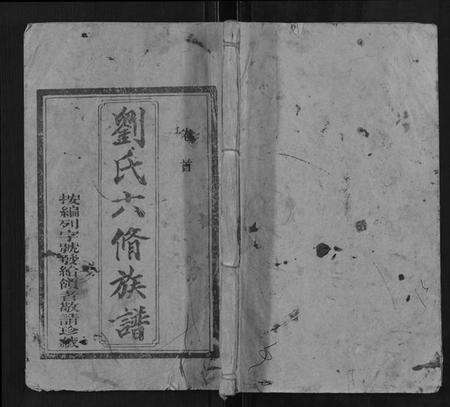 卷首
劉氏六脩族譜
按編列字號發給領者敬請珍藏